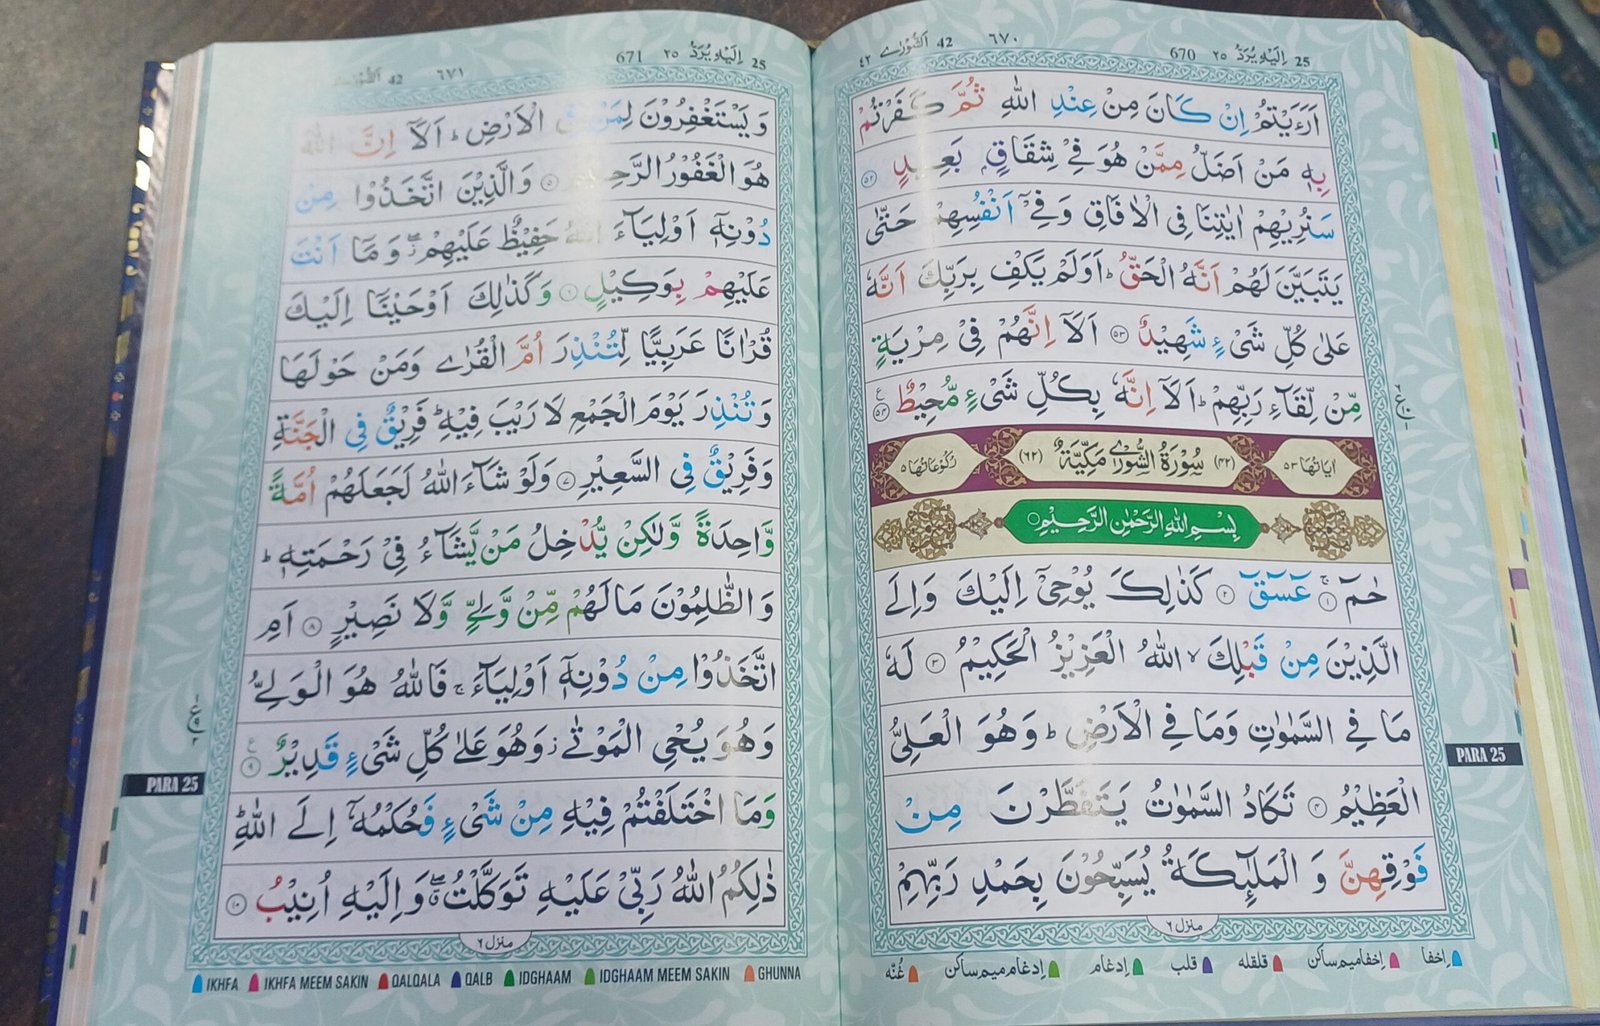 25 اِلَيْهِ يُرَدُّ ٢٥ 670 ٦٧٠ 42 اَلشُّوْرٰى ٤٢
اَرَءَيْتُمْ اِنْ كَانَ مِنْ عِنْدِ اللّٰهِ ثُمَّ كَفَرْتُمْ
بِهٖ مَنْ اَضَلُّ مِمَّنْ هُوَ فِيْ شِقَاقٍۭ بَعِيْدٍ ۝٥٢
سَنُرِيْهِمْ اٰيٰتِنَا فِى الْاٰفَاقِ وَفِيْٓ اَنْفُسِهِمْ حَتّٰى
يَتَبَيَّنَ لَهُمْ اَنَّهُ الْحَقُّ ؕ اَوَلَمْ يَكْفِ بِرَبِّكَ اَنَّهٗ
عَلٰى كُلِّ شَيْءٍ شَهِيْدٌ ۝٥٣ اَلَاۤ اِنَّهُمْ فِيْ مِرْيَةٍ
مِّنْ لِّقَآءِ رَبِّهِمْ ؕ اَلَاۤ اِنَّهٗ بِكُلِّ شَيْءٍ مُّحِيْطٌ ۝٥٤
اٰيَاتُهَا ٥٣ (٤٢) سُوْرَةُ الشُّوْرٰى مَكِّيَّةٌ (٦٢) رُكُوْعَاتُهَا ٥
بِسْمِ اللّٰهِ الرَّحْمٰنِ الرَّحِيْمِ
حٰمٓ ۝١ عٓسٓقٓ ۝٢ كَذٰلِكَ يُوْحِيْٓ اِلَيْكَ وَاِلَى
الَّذِيْنَ مِنْ قَبْلِكَ ۙ اللّٰهُ الْعَزِيْزُ الْحَكِيْمُ ۝٣ لَهٗ
مَا فِي السَّمٰوٰتِ وَمَا فِي الْاَرْضِ ؕ وَهُوَ الْعَلِيُّ
الْعَظِيْمُ ۝٤ تَكَادُ السَّمٰوٰتُ يَتَفَطَّرْنَ مِنْ
فَوْقِهِنَّ وَ الْمَلٰٓئِكَةُ يُسَبِّحُوْنَ بِحَمْدِ رَبِّهِمْ
منزل ٦
PARA 25
اخفا اخفا میم ساکن قلقله قلب ادغام ادغام میم ساکن غُنّه
25 اِلَيْهِ يُرَدُّ ٢٥ 671 ٦٧١ 42 اَلشُّوْرٰى
وَيَسْتَغْفِرُوْنَ لِمَنْ فِي الْاَرْضِ ؕ اَلَاۤ اِنَّ اللّٰهَ
هُوَ الْغَفُوْرُ الرَّحِيْمُ ۝٥ وَالَّذِيْنَ اتَّخَذُوْا مِنْ
دُوْنِهٖٓ اَوْلِيَآءَ اللّٰهُ حَفِيْظٌ عَلَيْهِمْ ۖ وَ مَاۤ اَنْتَ
عَلَيْهِمْ بِوَكِيْلٍ ۝٦ وَكَذٰلِكَ اَوْحَيْنَاۤ اِلَيْكَ
قُرْاٰنًا عَرَبِيًّا لِّتُنْذِرَ اُمَّ الْقُرٰى وَمَنْ حَوْلَهَا
وَتُنْذِرَ يَوْمَ الْجَمْعِ لَا رَيْبَ فِيْهِ ؕ فَرِيْقٌ فِي الْجَنَّةِ
وَفَرِيْقٌ فِي السَّعِيْرِ ۝٧ وَلَوْ شَآءَ اللّٰهُ لَجَعَلَهُمْ اُمَّةً
وَّاحِدَةً وَّلٰكِنْ يُّدْخِلُ مَنْ يَّشَآءُ فِيْ رَحْمَتِهٖ ؕ
وَ الظّٰلِمُوْنَ مَا لَهُمْ مِّنْ وَّلِيٍّ وَّلَا نَصِيْرٍ ۝٨ اَمِ
اتَّخَذُوْا مِنْ دُوْنِهٖٓ اَوْلِيَآءَ ۚ فَاللّٰهُ هُوَ الْوَلِيُّ
وَهُوَ يُحْيِ الْمَوْتٰى ؗ وَهُوَ عَلٰى كُلِّ شَيْءٍ قَدِيْرٌ ۝٩
وَمَا اخْتَلَفْتُمْ فِيْهِ مِنْ شَيْءٍ فَحُكْمُهٗٓ اِلَى اللّٰهِ ؕ
ذٰلِكُمُ اللّٰهُ رَبِّيْ عَلَيْهِ تَوَكَّلْتُ ۖ وَ اِلَيْهِ اُنِيْبُ ۝١٠
منزل ٦
PARA 25
IKHFA IKHFA MEEM SAKIN QALQALA QALB IDGHAAM IDGHAAM MEEM SAKIN GHUNNA